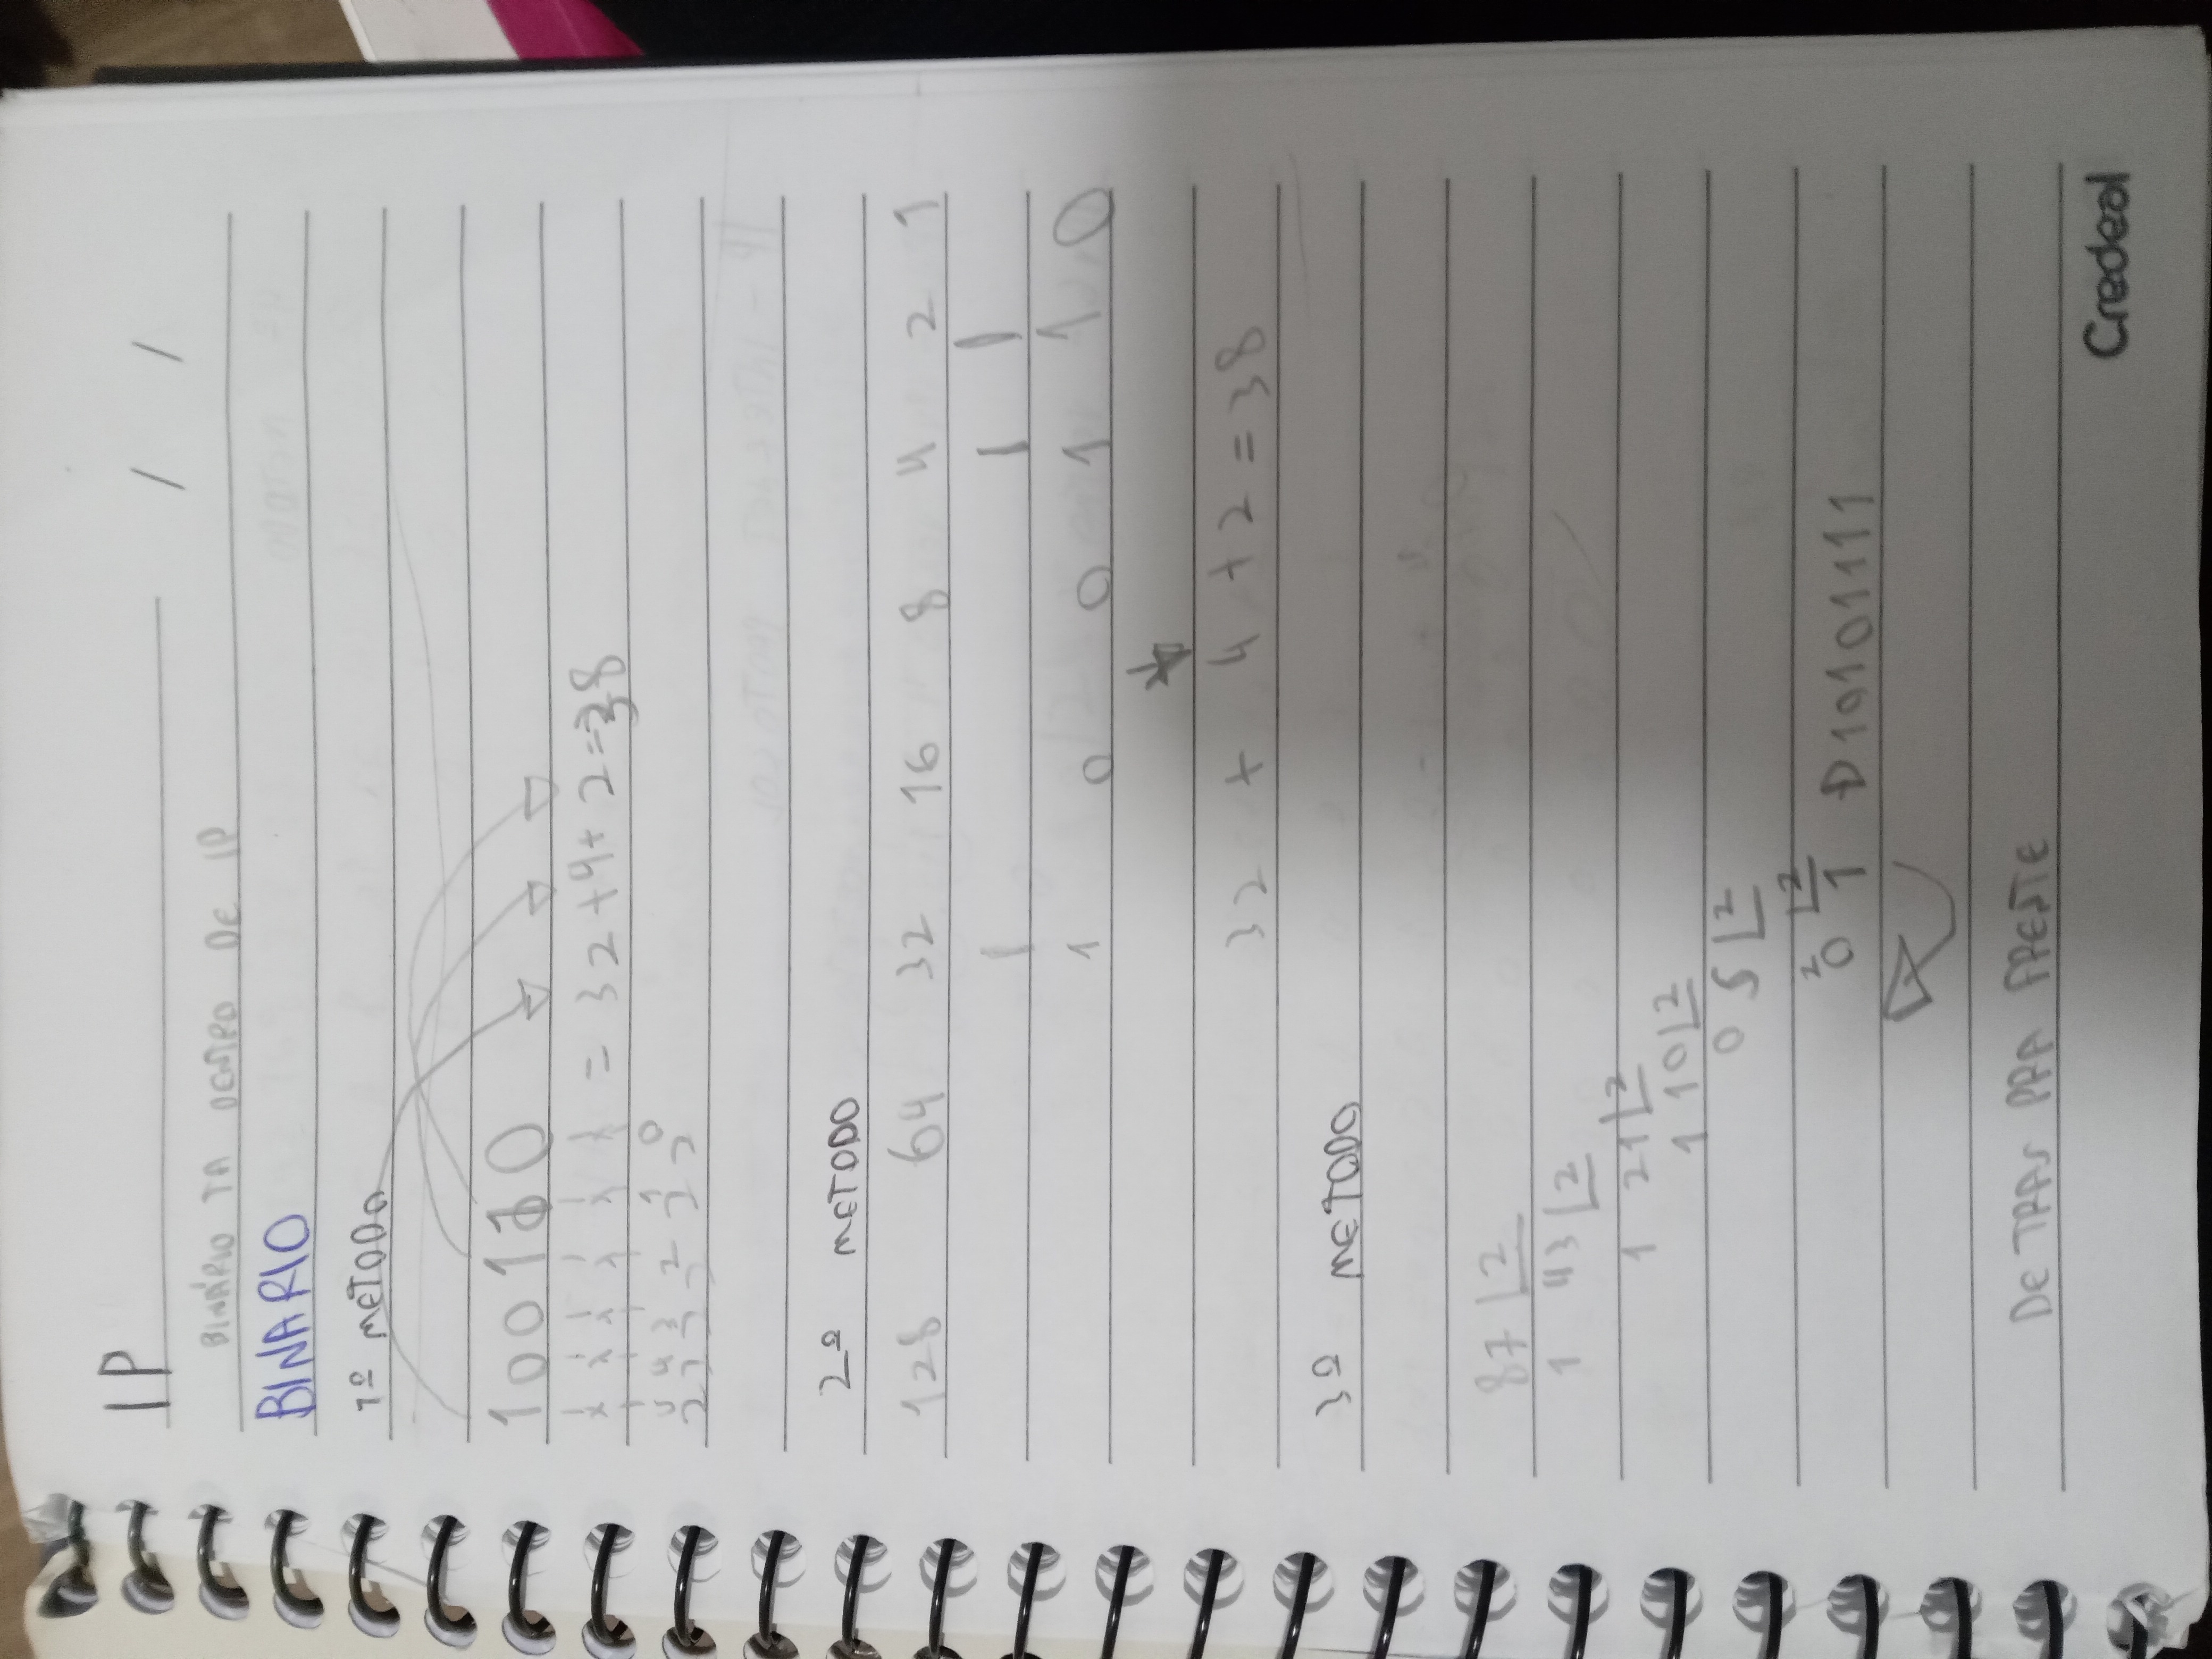 IP / /
BINÁRIO TA DENTRO DE IP
BINARIO
1º METODO
100110
1 1 1 1 1 1
x x x x x x = 32+4+2=38
2⁵ 2⁴ 2³ 2² 2¹ 2⁰
2º METODO
128 64 32 16 8 4 2 1
1 1 1
1 0 0 1 1 0
32 + 4 + 2 = 38
3º METODO
87 2
1 43 2
1 21 2
1 10 2
0 5 2
2 2
0 1 1010111
DE TRAS PRA FRENTE
Credeal